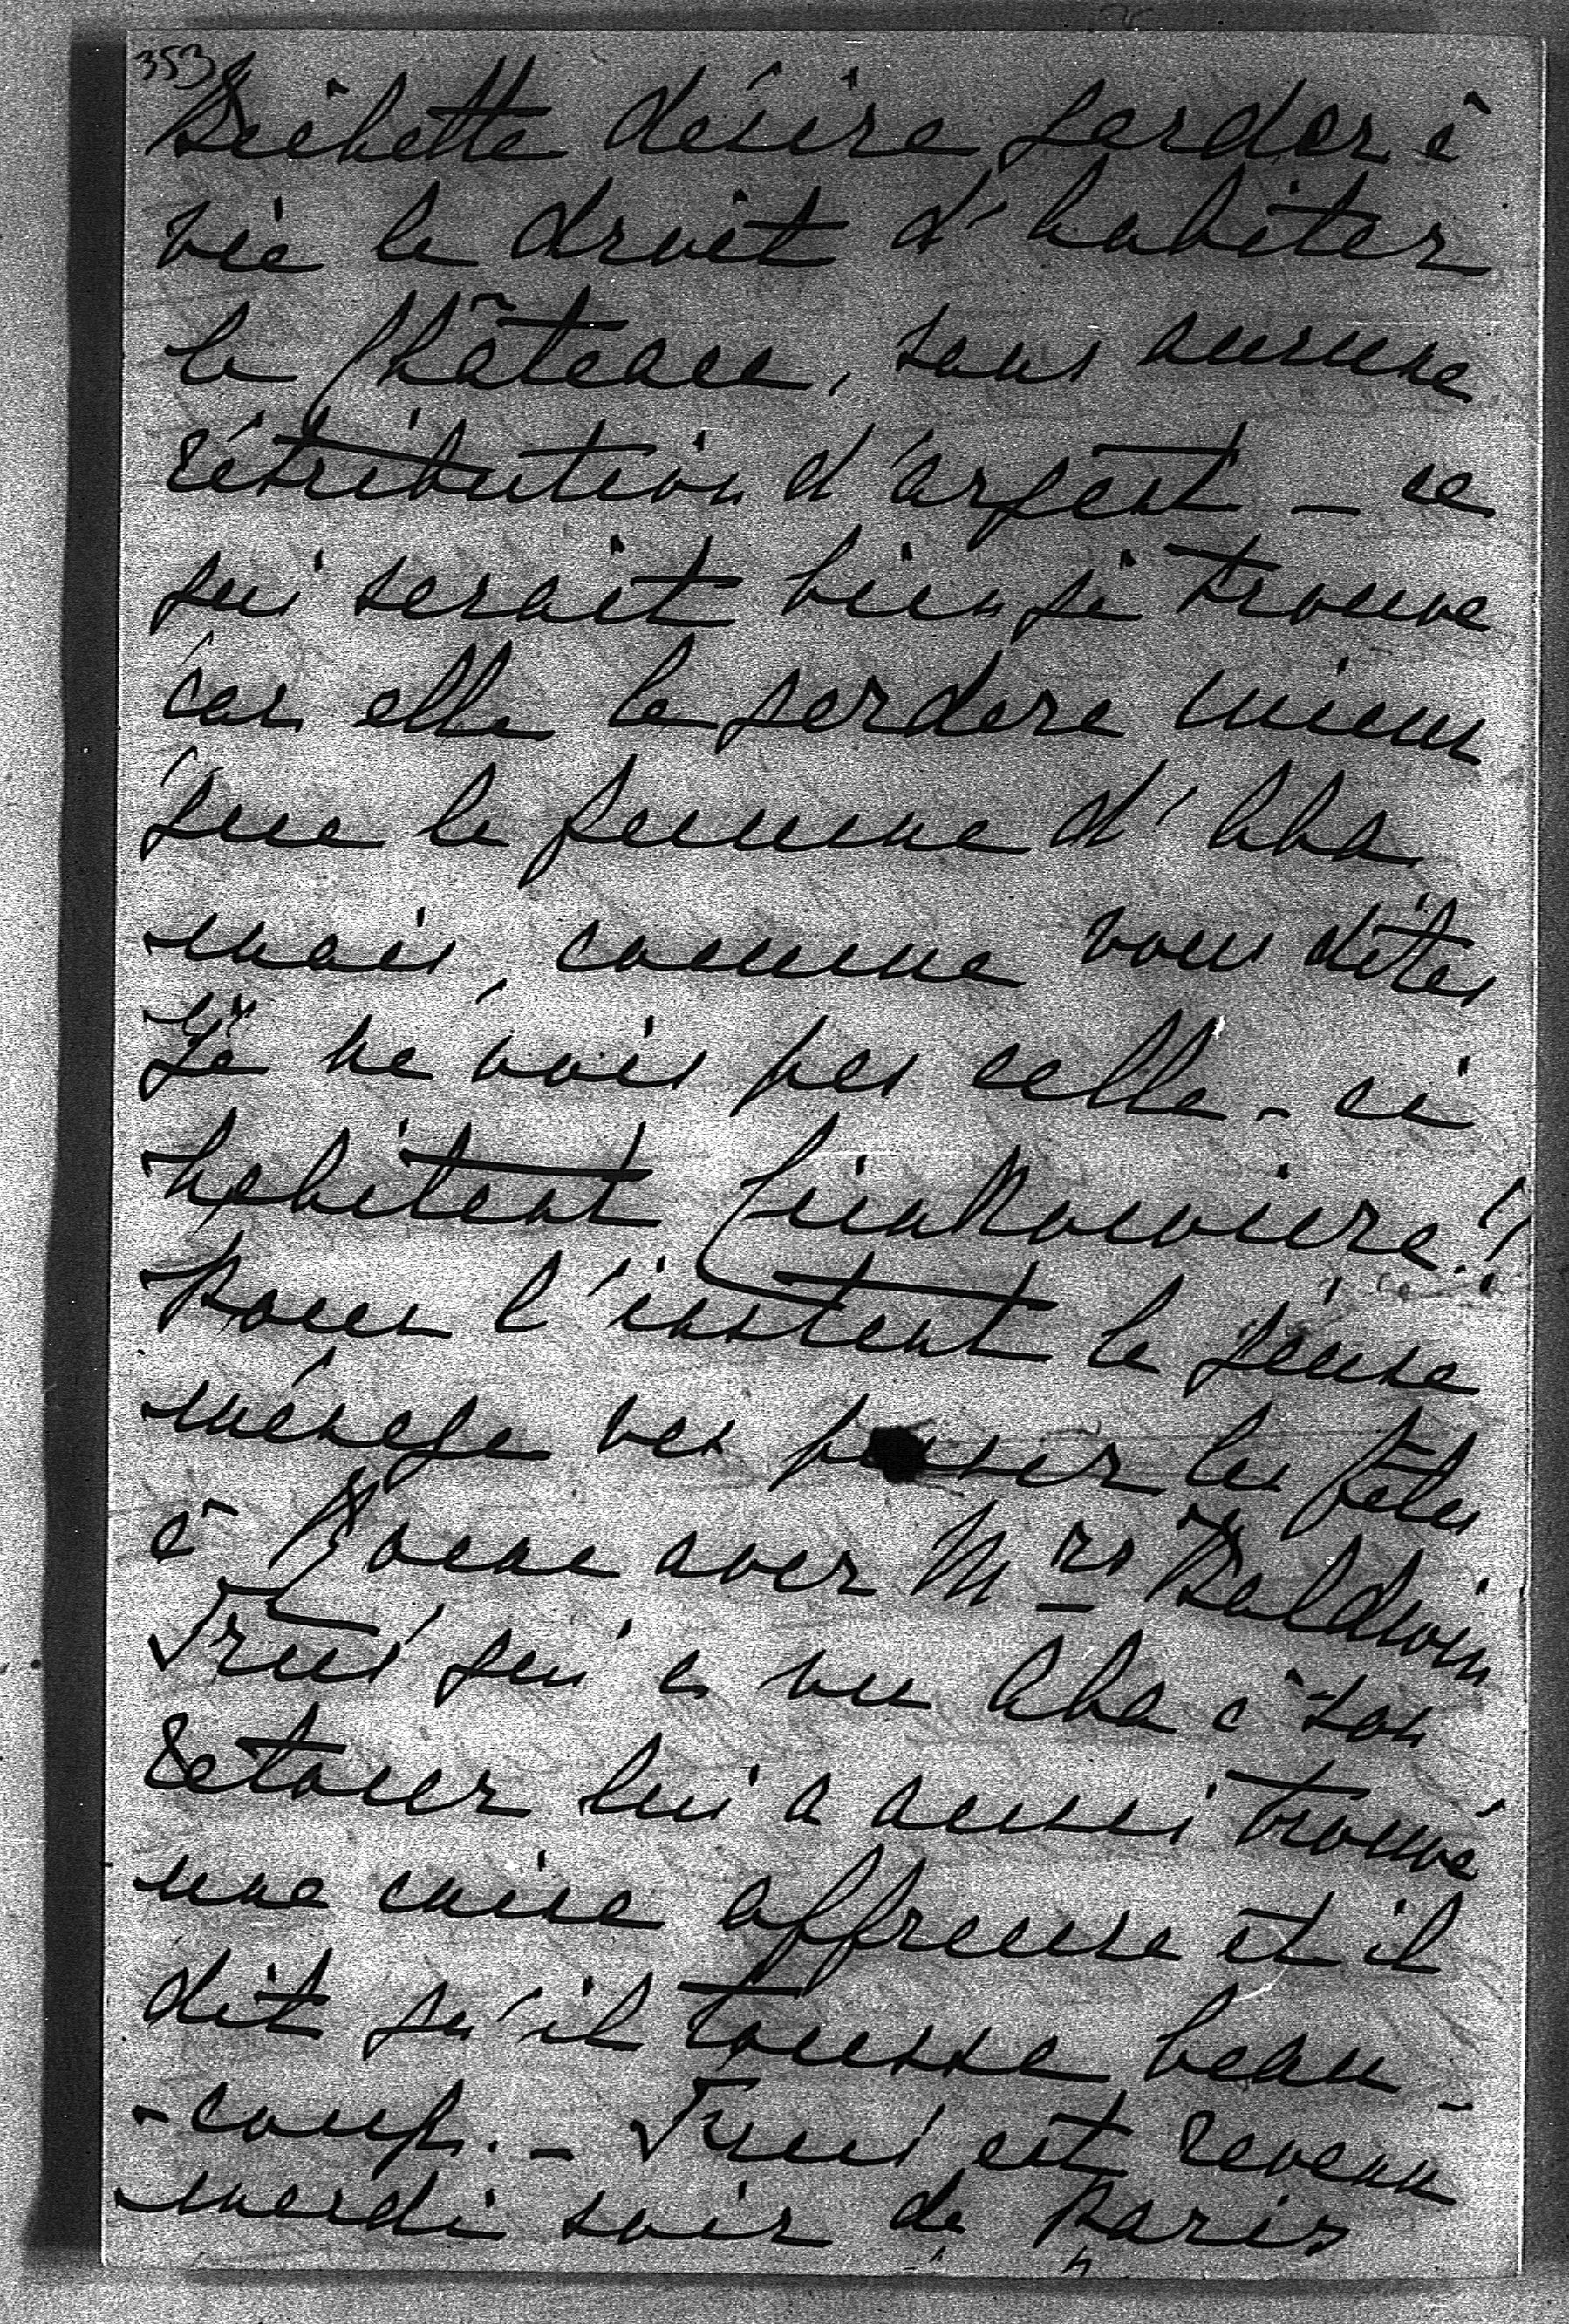 353
Bichette désire garder à
vie le droit d'habiter
le Château, sans aucune
rétribution d'argent – ce
qui serait bien je trouve
car elle le gardera mieux
que la femme d'Aba
mais, comme vous dites
Je ne vois pas celle-ci
habitant !
Pour l'instant le jeune
ménage va passer les fêtes
à Rome avec Mrs Baldwin
Fredi qui a vu Aba à son
retour lui a aussi trouvé
une mine affreuse et il
dit qu'il tousse beau-
-coup. – Fredi est revenu
mardi soir de Paris